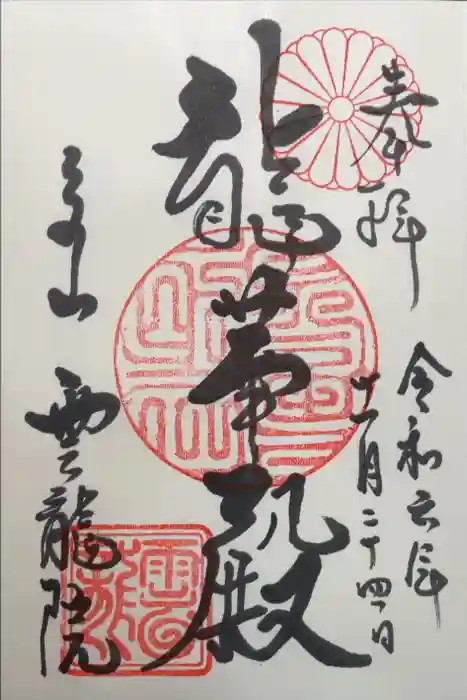 奉拝
令和六年
十一月二十四日
龍華殿
泉山
雲龍院